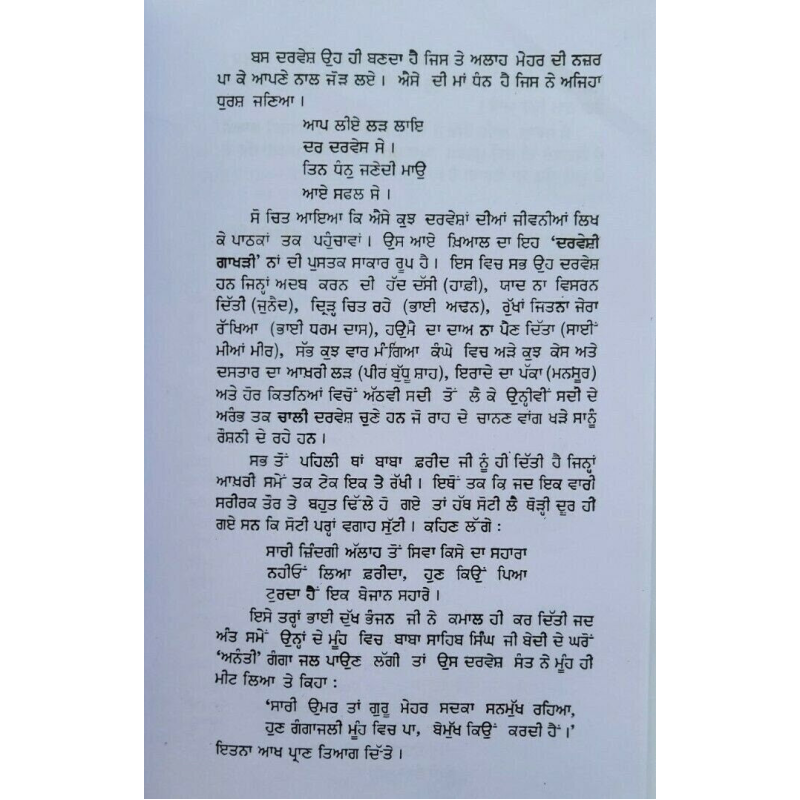 ਬਸ ਦਰਵੇਸ਼ ਉਹ ਹੀ ਬਣਦਾ ਹੈ ਜਿਸ ਤੇ ਅਲਾਹ ਮੇਹਰ ਦੀ ਨਜ਼ਰ
ਪਾ ਕੇ ਆਪਣੇ ਨਾਲ ਜੋੜ ਲਏ। ਐਸੇ ਦੀ ਮਾਂ ਧੰਨ ਹੈ ਜਿਸ ਨੇ ਅਜਿਹਾ
ਧੁਰਸ਼ ਜਣਿਆ।
ਆਪ ਲੀਏ ਲੜ ਲਾਇ
ਦਰ ਦਰਵੇਸ ਸੇ।
ਤਿਨ ਧੰਨੁ ਜਣੇਦੀ ਮਾਉ
ਆਏ ਸਫਲ ਸੇ।
ਸੋ ਚਿਤ ਆਇਆ ਕਿ ਐਸੇ ਕੁਝ ਦਰਵੇਸ਼ਾਂ ਦੀਆਂ ਜੀਵਨੀਆਂ ਲਿਖ
ਕੇ ਪਾਠਕਾਂ ਤਕ ਪਹੁੰਚਾਵਾਂ। ਉਸ ਆਏ ਖ਼ਿਆਲ ਦਾ ਇਹ ‘ਦਰਵੇਸ਼ੀ
ਗਾਖੜੀ’ ਨਾਂ ਦੀ ਪੁਸਤਕ ਸਾਕਾਰ ਰੂਪ ਹੈ। ਇਸ ਵਿਚ ਸਭ ਉਹ ਦਰਵੇਸ਼
ਹਨ ਜਿਨ੍ਹਾਂ ਅਦਬ ਕਰਨ ਦੀ ਹੱਦ ਦੱਸੀ (ਹਾਫ਼ੀ), ਯਾਦ ਨਾ ਵਿਸਰਨ
ਦਿੱਤੀ (ਜੁਨੈਦ), ਦ੍ਰਿੜ੍ਹ ਚਿਤ ਰਹੇ (ਭਾਈ ਅਢਨ), ਰੁੱਖਾਂ ਜਿਤਨਾ ਜੇਰਾ
ਰੱਖਿਆ (ਭਾਈ ਧਰਮ ਦਾਸ), ਹਉਮੈ ਦਾ ਦਾਅ ਨਾ ਪੈਣ ਦਿੱਤਾ (ਸਾਈਂ
ਮੀਆਂ ਮੀਰ), ਸੱਭ ਕੁਝ ਵਾਰ ਮੰਗਿਆ ਕੰਘੇ ਵਿਚ ਅੜੇ ਕੁਝ ਕੇਸ ਅਤੇ
ਦਸਤਾਰ ਦਾ ਆਖ਼ਰੀ ਲੜ (ਪੀਰ ਬੁੱਧੂ ਸ਼ਾਹ), ਇਰਾਦੇ ਦਾ ਪੱਕਾ (ਮਨਸੂਰ)
ਅਤੇ ਹੋਰ ਕਿਤਨਿਆਂ ਵਿਚੋਂ ਅੱਠਵੀ ਸਦੀ ਤੋਂ ਲੈ ਕੇ ਉਨ੍ਹੀਵੀਂ ਸਦੀ ਦੇ
ਅਰੰਭ ਤਕ ਚਾਲੀ ਦਰਵੇਸ਼ ਚੁਣੇ ਹਨ ਜੋ ਰਾਹ ਦੇ ਚਾਨਣ ਵਾਂਗ ਖੜੇ ਸਾਨੂੰ
ਰੌਸ਼ਨੀ ਦੇ ਰਹੇ ਹਨ।
ਸਭ ਤੋਂ ਪਹਿਲੀ ਥਾਂ ਬਾਬਾ ਫ਼ਰੀਦ ਜੀ ਨੂੰ ਹੀ ਦਿੱਤੀ ਹੈ ਜਿਨ੍ਹਾਂ
ਆਖ਼ਰੀ ਸਮੇਂ ਤਕ ਟੇਕ ਇਕ ਤੇ ਰੱਖੀ। ਇਥੋਂ ਤਕ ਕਿ ਜਦ ਇਕ ਵਾਰੀ
ਸਰੀਰਕ ਤੌਰ ਤੇ ਬਹੁਤ ਢਿੱਲੇ ਹੋ ਗਏ ਤਾਂ ਹੱਥ ਸੋਟੀ ਲੈ ਥੋੜ੍ਹੀ ਦੂਰ ਹੀ
ਗਏ ਸਨ ਕਿ ਸੋਟੀ ਪਰ੍ਹਾਂ ਵਗਾਹ ਸੁੱਟੀ। ਕਹਿਣ ਲੱਗੇ :
ਸਾਰੀ ਜ਼ਿੰਦਗੀ ਅੱਲਾਹ ਤੋਂ ਸਿਵਾ ਕਿਸੇ ਦਾ ਸਹਾਰਾ
ਨਹੀਓਂ ਲਿਆ ਫ਼ਰੀਦਾ, ਹੁਣ ਕਿਉਂ ਪਿਆ
ਟੁਰਦਾ ਹੈਂ ਇਕ ਬੇਜਾਨ ਸਹਾਰੇ।
ਇਸੇ ਤਰ੍ਹਾਂ ਭਾਈ ਦੁੱਖ ਭੰਜਨ ਜੀ ਨੇ ਕਮਾਲ ਹੀ ਕਰ ਦਿੱਤੀ ਜਦ
ਅੰਤ ਸਮੇਂ ਉਨ੍ਹਾਂ ਦੇ ਮੂੰਹ ਵਿਚ ਬਾਬਾ ਸਾਹਿਬ ਸਿੰਘ ਜੀ ਬੇਦੀ ਦੇ ਘਰੋਂ
‘ਅਨੰਤੀ’ ਗੰਗਾ ਜਲ ਪਾਉਣ ਲੱਗੀ ਤਾਂ ਉਸ ਦਰਵੇਸ਼ ਸੰਤ ਨੇ ਮੂੰਹ ਹੀ
ਮੀਟ ਲਿਆ ਤੇ ਕਿਹਾ :
‘ਸਾਰੀ ਉਮਰ ਤਾਂ ਗੁਰੂ ਮੇਹਰ ਸਦਕਾ ਸਨਮੁੱਖ ਰਹਿਆ,
ਹੁਣ ਗੰਗਾਜਲੀ ਮੂੰਹ ਵਿਚ ਪਾ, ਬੇਮੁੱਖ ਕਿਉਂ ਕਰਦੀ ਹੈਂ।’
ਇਤਨਾ ਆਖ ਪ੍ਰਾਣ ਤਿਆਗ ਦਿੱਤੇ।